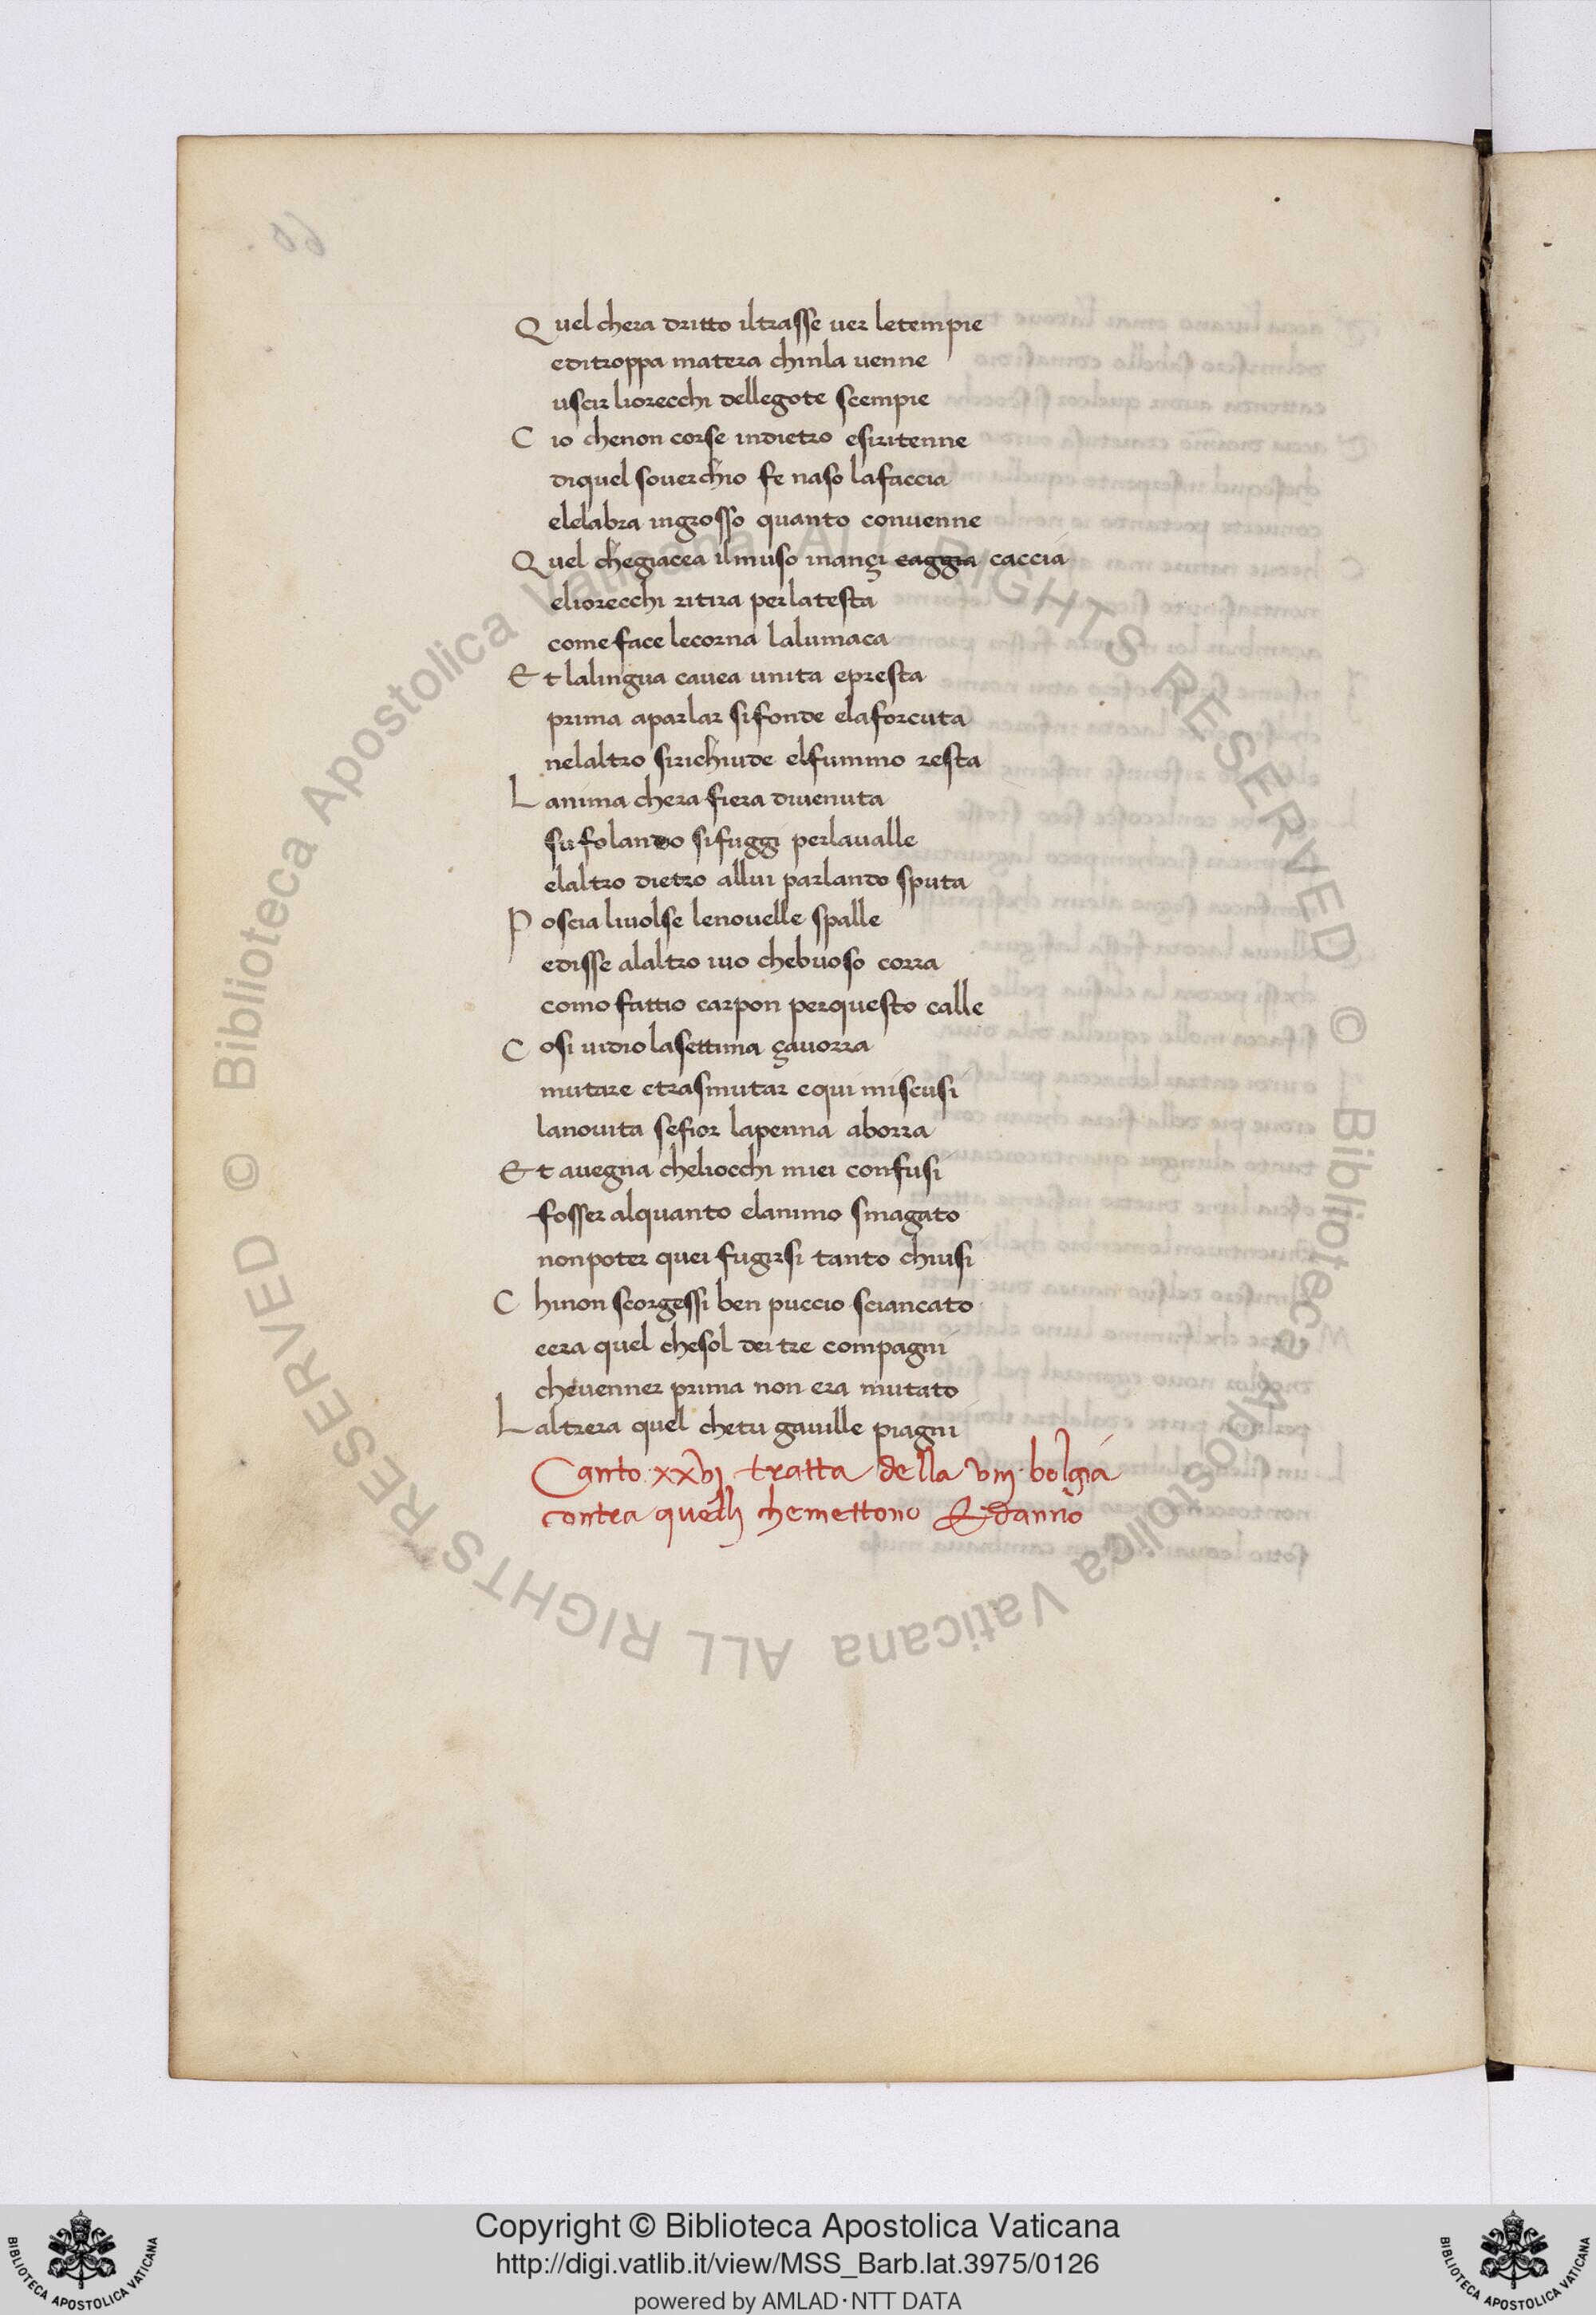 Quel chera dritto iltrasse uer letempie
editroppa matera chinla uenne
uscir liorecchi dellegote scempie
Cio chenon corse indietro esiritenne
diquel souerchio fe naso lafaccia
elelabra ingrosso quanto conuenne
Quel chegiacea ilmuso inançi caggia caccia
eliorecchi ritira perlatesta
come face lecorna lalumaca
Et lalingua cauea unita epresta
prima aparlar sifonde elaforcuta
nelaltro sirichiude elfummo resta
Lanima chera fiera diuenuta
sufolando sifuggi perlaualle
elaltro dietro allui parlando sputa
Poscia liuolse lenouelle spalle
edisse alaltro iuo chebuoso corra
como fattio carpon perquesto calle
Cosi uidio lasettima çauorra
mutare etrasmutar equi miscusi
lanouita sefior lapenna aborra
Et auegna cheliocchi miei confusi
fosser alquanto elanimo smagato
nonpoter quei fugirsi tanto chiusi
Chinon scorgessi ben puccio sciancato
eera quel chesol dei tre compagni
cheuenner prima non era mutato
Laltrera quel chetu gauille piagni
Canto xxvj tratta della viij bolgia
contra quelli che mettono Et danno
60.
© Biblioteca Apostolica Vaticana ALL RIGHTS RESERVED © Biblioteca Apostolica Vaticana ALL RIGHTS RESERVED
Copyright © Biblioteca Apostolica Vaticana
http://digi.vatlib.it/view/MSS_Barb.lat.3975/0126
powered by AMLAD·NTT DATA
BIBLIOTECA APOSTOLICA VATICANA
BIBLIOTECA APOSTOLICA VATICANA